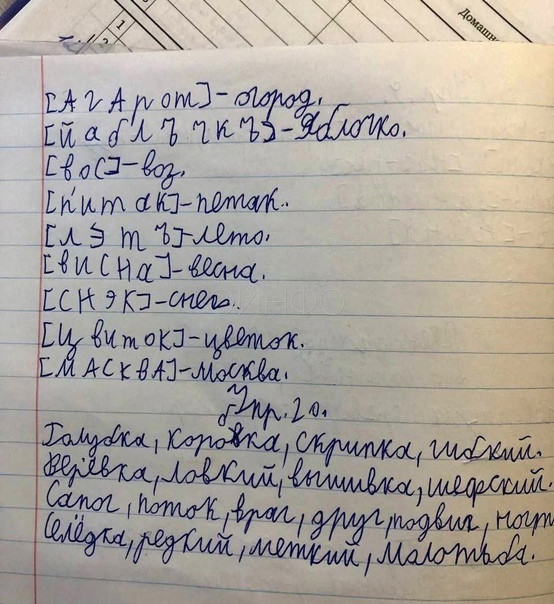 Домашн
[АгАрот]-огород.
[йаблъчкъ]-Яблочко.
[вос]-воз.
[п'итак]-петак.
[лэтъ]-лето.
[висна]-весна.
[снэк]-снег.
[цвиток]-цветок.
[МАСКВА]-Москва.
Упр.20.
Голубка, коровка, скрипка, гибкий.
Верёвка, ловкий, вышивка, шефский.
Сапог, поток, враг, друг, подвиг, ногт
Селёдка, редкий, меткий, молотьба.